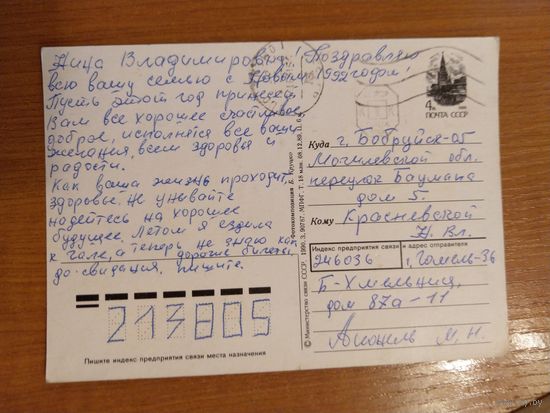 Нина Владимировна! Поздравляю
всю вашу семью с Новым 1992 годом!
Пусть этот год принесёт
Вам все хорошее счастливое,
доброе, исполнятся все ваши
желания, всем здоровья и
радости.
Как ваша жизнь проходит,
здоровье. Не унывайте
надейтесь на хорошее
будущее. Летом я ездила
к Гале, а теперь не знаю как
дорогие билеты,
до-свидания, пишите.
213805
Пишите индекс предприятия связи места назначения
© Министерство связи СССР. 1990. З. 90767. МПФГ. Т. 18 млн. 08.12.89. Ц. 6 к.
Фотокомпозиция Б. Круцко
4к
ПОЧТА СССР
Куда г. Бобруйск-05
Могилевской обл.
переулок Баумана
дом 5.
Кому Красневской
Н. Вл.
Индекс предприятия связи и адрес отправителя
246036, Гомель-36
Б-Хмельниц.
дом 87а-11
М. Н.